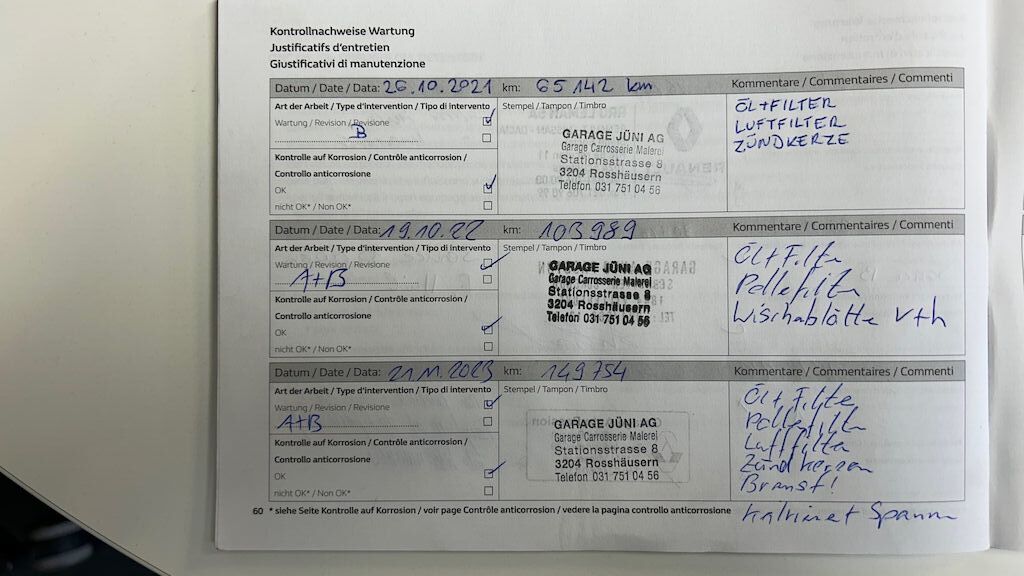 Kontrollnachweise Wartung
Justificatifs d'entretien
Giustificativi di manutenzione
Datum / Date / Data: 26.10.2021 km: 65142 km Kommentare / Commentaires / Commenti
Art der Arbeit / Type d'intervention / Tipo di intervento Stempel / Tampon / Timbro
Wartung / Revision / Revisione
B
Kontrolle auf Korrosion / Contrôle anticorrosion /
Controllo anticorrosione
OK
nicht OK* / Non OK*
GARAGE JÜNI AG
Garage Carrosserie Malerei
Stationsstrasse 8
3204 Rosshäusern
Telefon 031 751 04 56
ÖL+FILTER
LUFTFILTER
ZÜNDKERZE
Datum / Date / Data: 19.10.22 km: 103989 Kommentare / Commentaires / Commenti
Art der Arbeit / Type d'intervention / Tipo di intervento Stempel / Tampon / Timbro
Wartung / Revision / Revisione
A+B
Kontrolle auf Korrosion / Contrôle anticorrosion /
Controllo anticorrosione
OK
nicht OK* / Non OK*
GARAGE JÜNI AG
Garage Carrosserie Malerei
Stationsstrasse 8
3204 Rosshäusern
Telefon 031 751 04 56
Öl+Filter
Pollefilter
Wischablötte v+h
Datum / Date / Data: 21.11.2023 km: 149754 Kommentare / Commentaires / Commenti
Art der Arbeit / Type d'intervention / Tipo di intervento Stempel / Tampon / Timbro
Wartung / Revision / Revisione
A+B
Kontrolle auf Korrosion / Contrôle anticorrosion /
Controllo anticorrosione
OK
nicht OK* / Non OK*
GARAGE JÜNI AG
Garage Carrosserie Malerei
Stationsstrasse 8
3204 Rosshäusern
Telefon 031 751 04 56
Öl+Filter
Pollefilter
Luftfilter
Zündkerzen
Bremsf!
60 * siehe Seite Kontrolle auf Korrosion / voir page Contrôle anticorrosion / vedere la pagina controllo anticorrosione